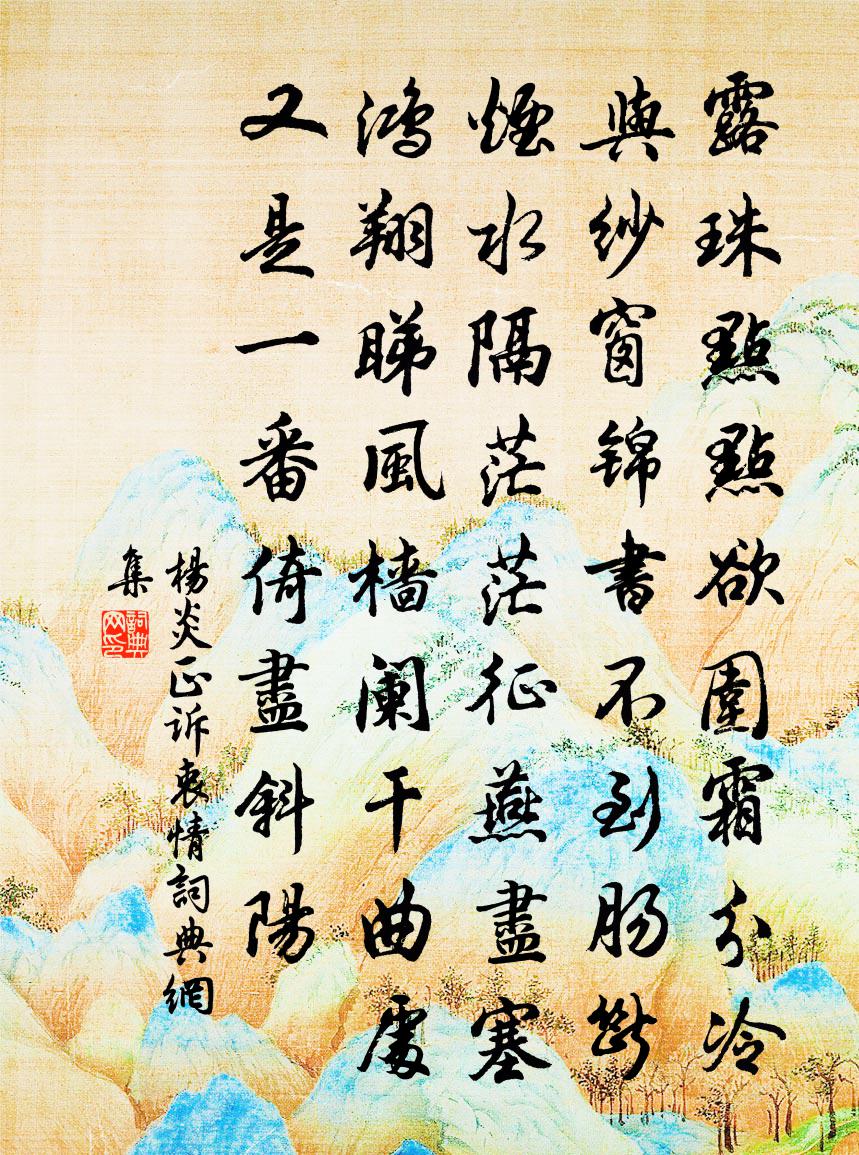 露珠點點欲團霜分冷
與紗窗錦書不到肠斷
煙水隔茫茫征燕盡塞
鴻翔睇風樯阑干曲處
又是一番倚盡斜陽
楊炎正诉衷情詞典網
集
詞典網印